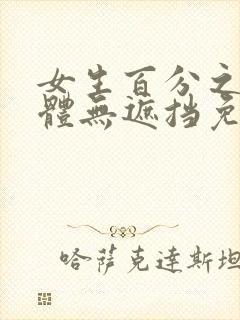 女生百分之
體無遮挡免
哈萨克达斯坦